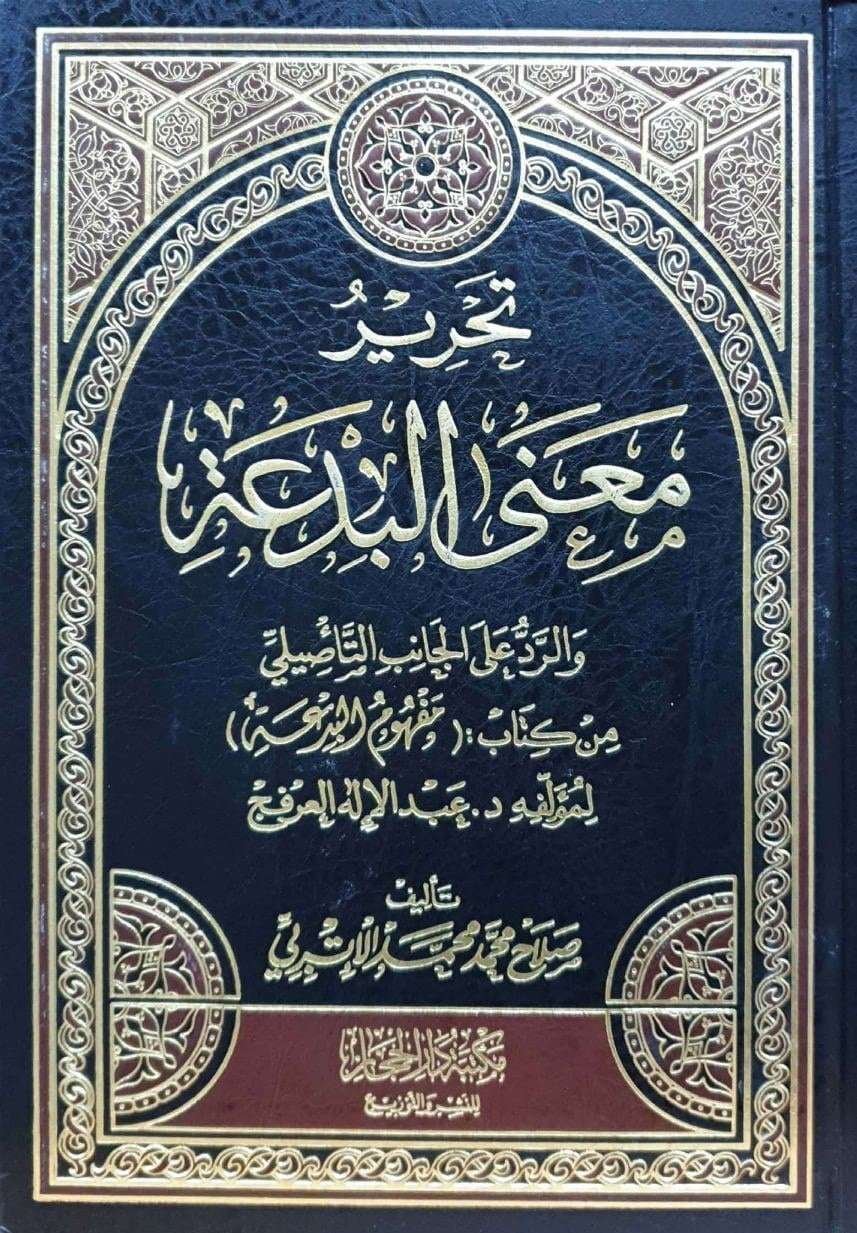 تَحْرِيْرُ
مَعْنَى البِدْعَةِ
وَالرَّدُّ عَلَى الجَانِبِ التَّأْصِيلِيِّ
مِنْ كِتَابِ: (مَفْهُومُ البِدْعَةِ)
لِمُؤَلِّفِهِ د. عَبْد الإِلَه العرفج
تأليف
صَلَاح مُحَمَّد مُحَمَّد الإِتْرِبِيّ
مكتبة دار الحجاز
للنشر والتوزيع